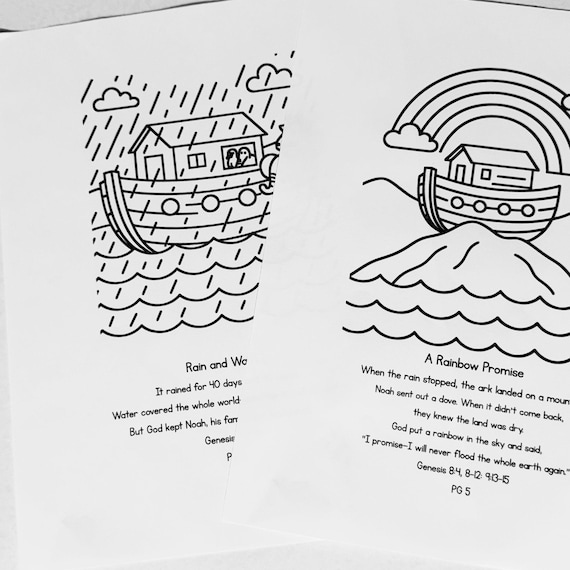 Rain and
It rained for 40 days
Water covered the whole world
But God kept Noah, his
Genesis
A Rainbow Promise
When the rain stopped, the ark landed on a
Noah sent out a dove. When it didn't come back,
they knew the land was dry.
God put a rainbow in the sky and said,
"I promise—I will never flood the whole earth again."
Genesis 8:4, 8-12; 9:13-15
PG 5